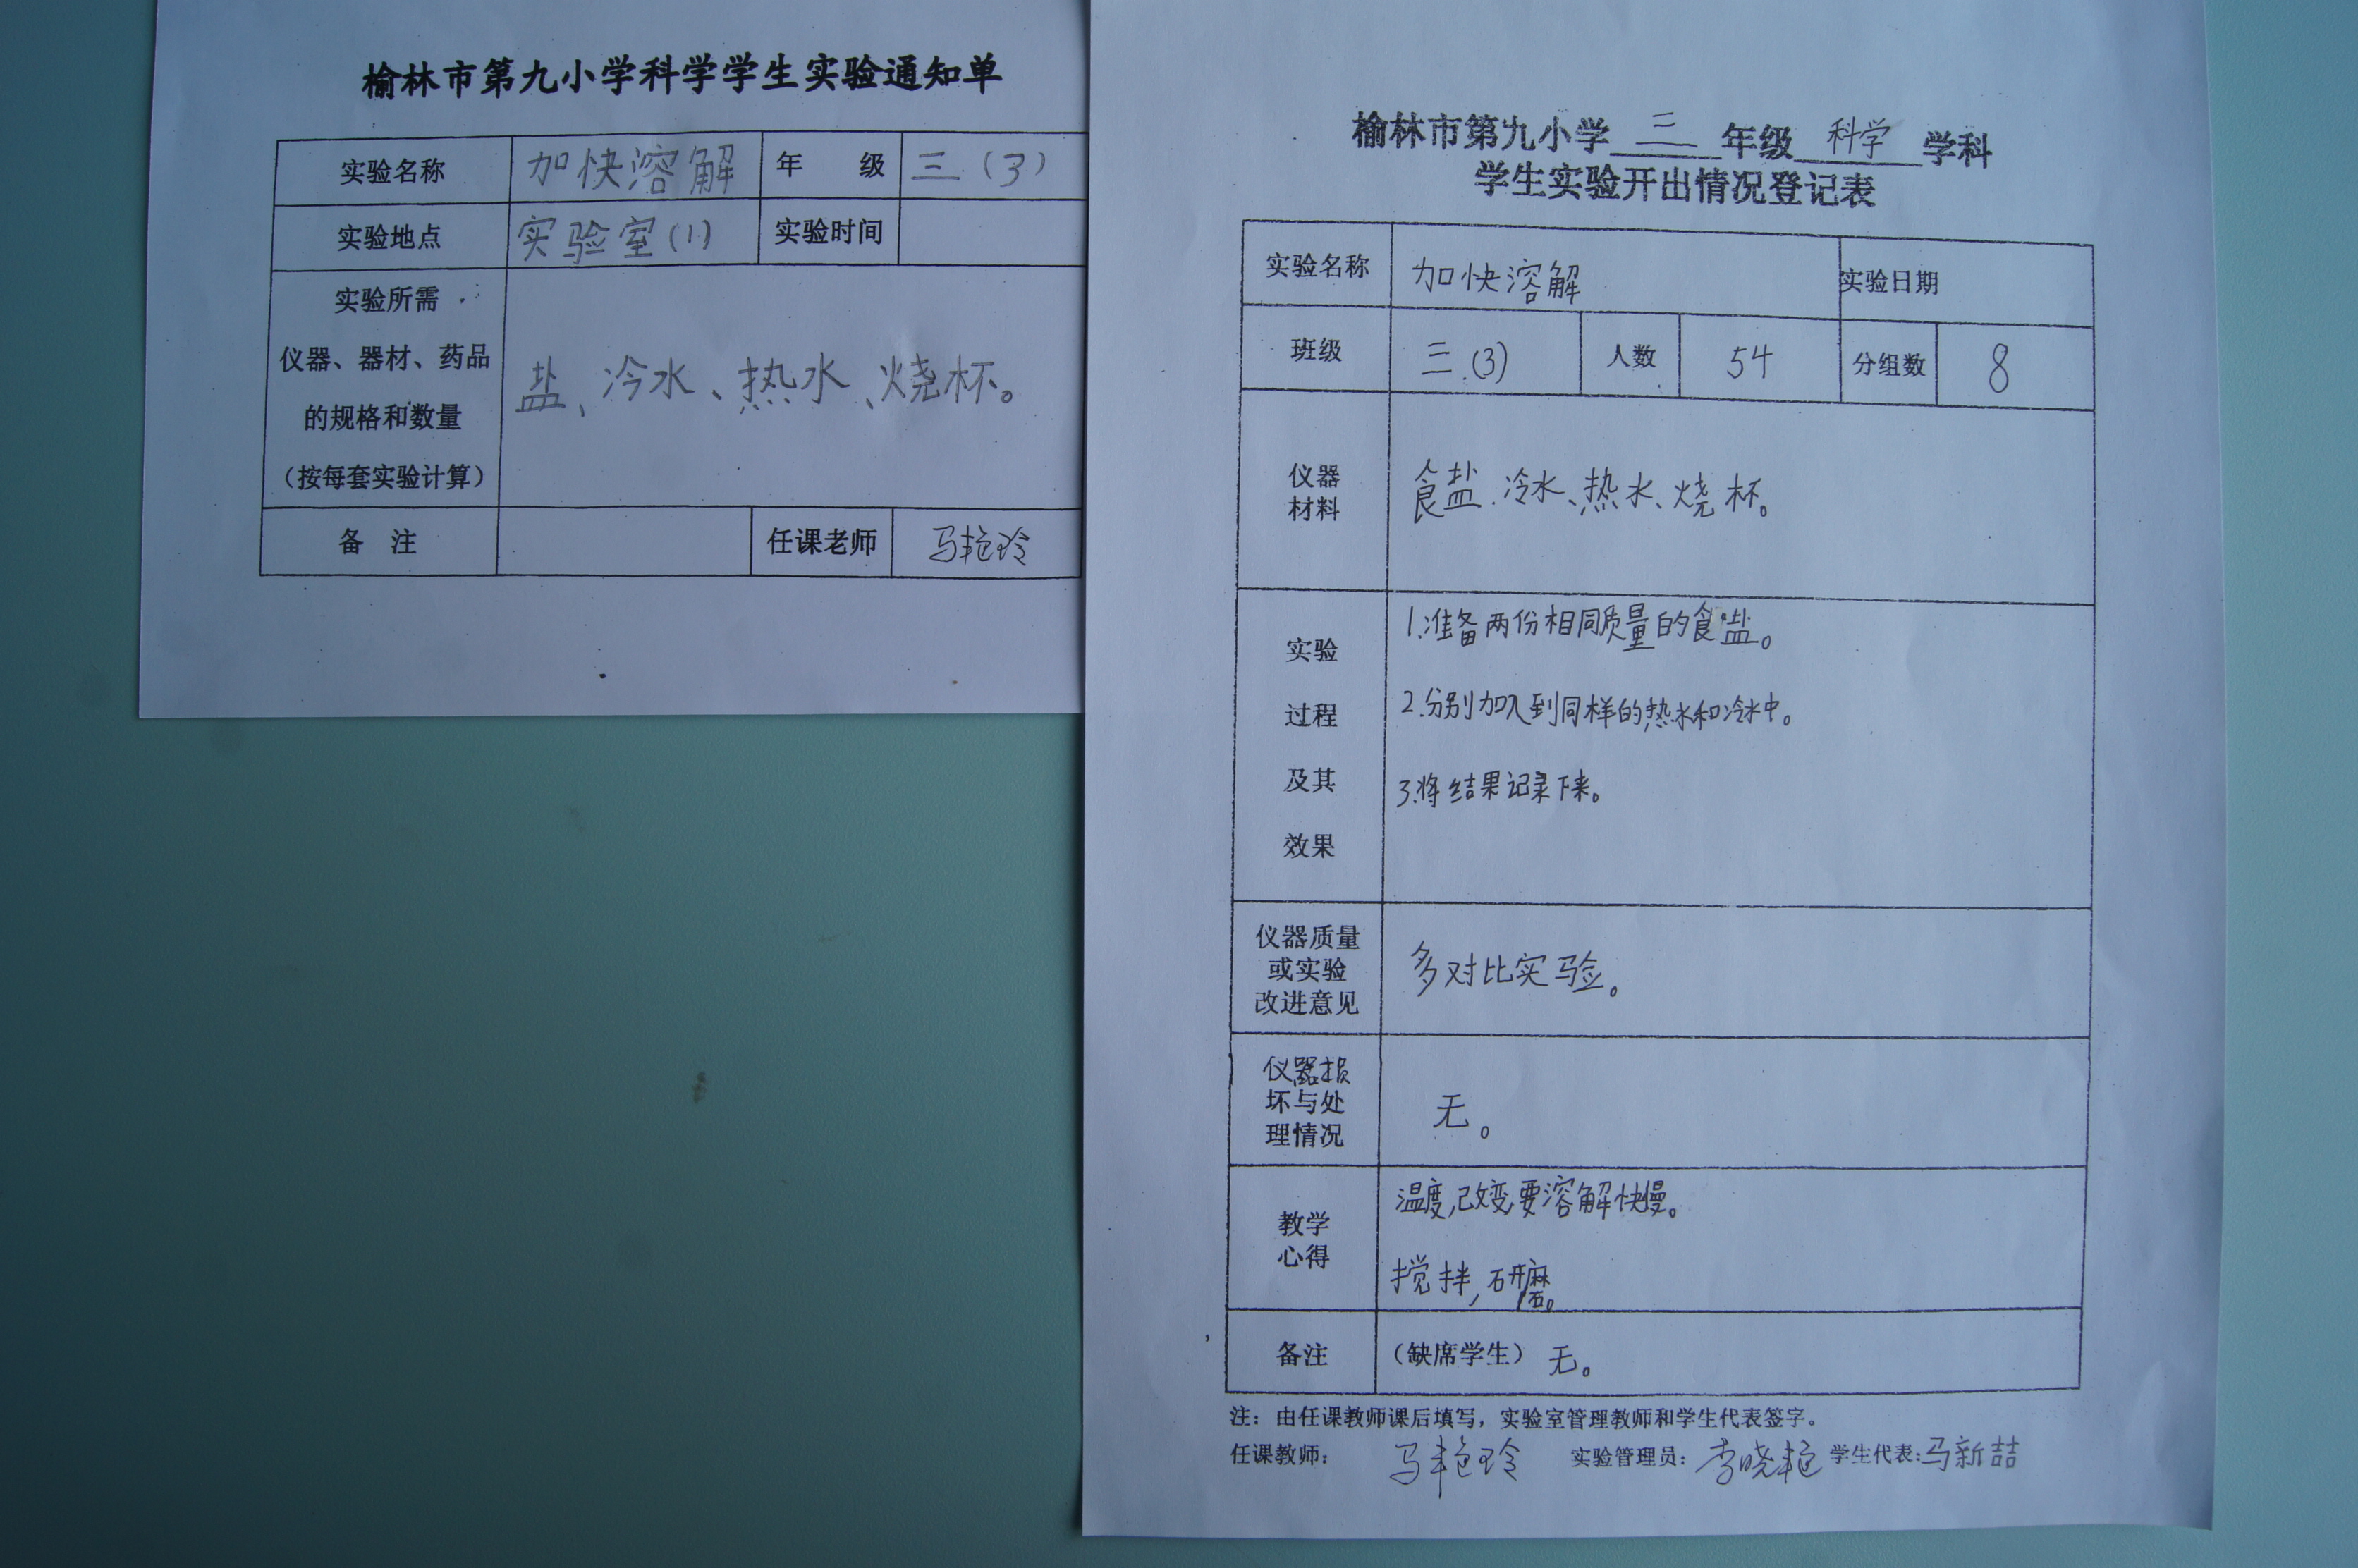 榆林市第九小学科学学生实验通知单
实验名称 加快溶解 年 级 三(3)
实验地点 实验室(1) 实验时间
实验所需
仪器、器材、药品
的规格和数量
(按每套实验计算)
盐、冷水、热水、烧杯。
备 注 任课老师 马艳玲
榆林市第九小学 三 年级 科学 学科
学生实验开出情况登记表
实验名称 加快溶解 实验日期
班级 三.(3) 人数 54 分组数 8
仪器
材料
食盐.冷水、热水、烧杯。
实验
过程
及其
效果
1.准备两份相同质量的食盐。
2.分别加入到同样的热水和冷水中。
3.将结果记录下来。
仪器质量
或实验
改进意见
多对比实验。
仪器损
坏与处
理情况
无。
教学
心得
温度,改变要溶解快慢。
搅拌,研磨。
备注 (缺席学生) 无。
注:由任课教师课后填写,实验室管理教师和学生代表签字。
任课教师: 马艳玲 实验管理员: 李晓艳 学生代表:马新喆